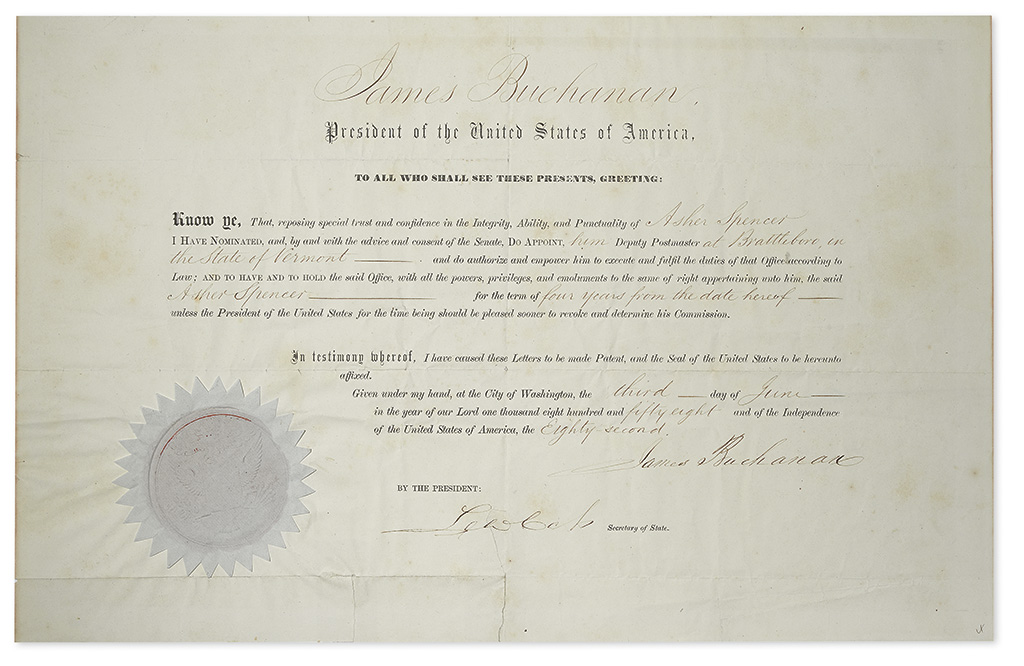 James Buchanan,
President of the United States of America,
TO ALL WHO SHALL SEE THESE PRESENTS, GREETING:
Know ye, That, reposing special trust and confidence in the Integrity, Ability, and Punctuality of Asher Spencer
I HAVE NOMINATED, and, by and with the advice and consent of the Senate, DO APPOINT, him Deputy Postmaster at Brattleboro, in
the State of Vermont — . and do authorize and empower him to execute and fulfil the duties of that Office according to
Law; AND TO HAVE AND TO HOLD the said Office, with all the powers, privileges, and emoluments to the same of right appertaining unto him, the said
Asher Spencer — for the term of four years from the date hereof —
unless the President of the United States for the time being should be pleased sooner to revoke and determine his Commission.
In testimony whereof, I have caused these Letters to be made Patent, and the Seal of the United States to be hereunto
affixed.
Given under my hand, at the City of Washington, the third — day of June —
in the year of our Lord one thousand eight hundred and fifty eight and of the Independence
of the United States of America, the Eighty-second.
James Buchanan
BY THE PRESIDENT:
Lew Cass Secretary of State.